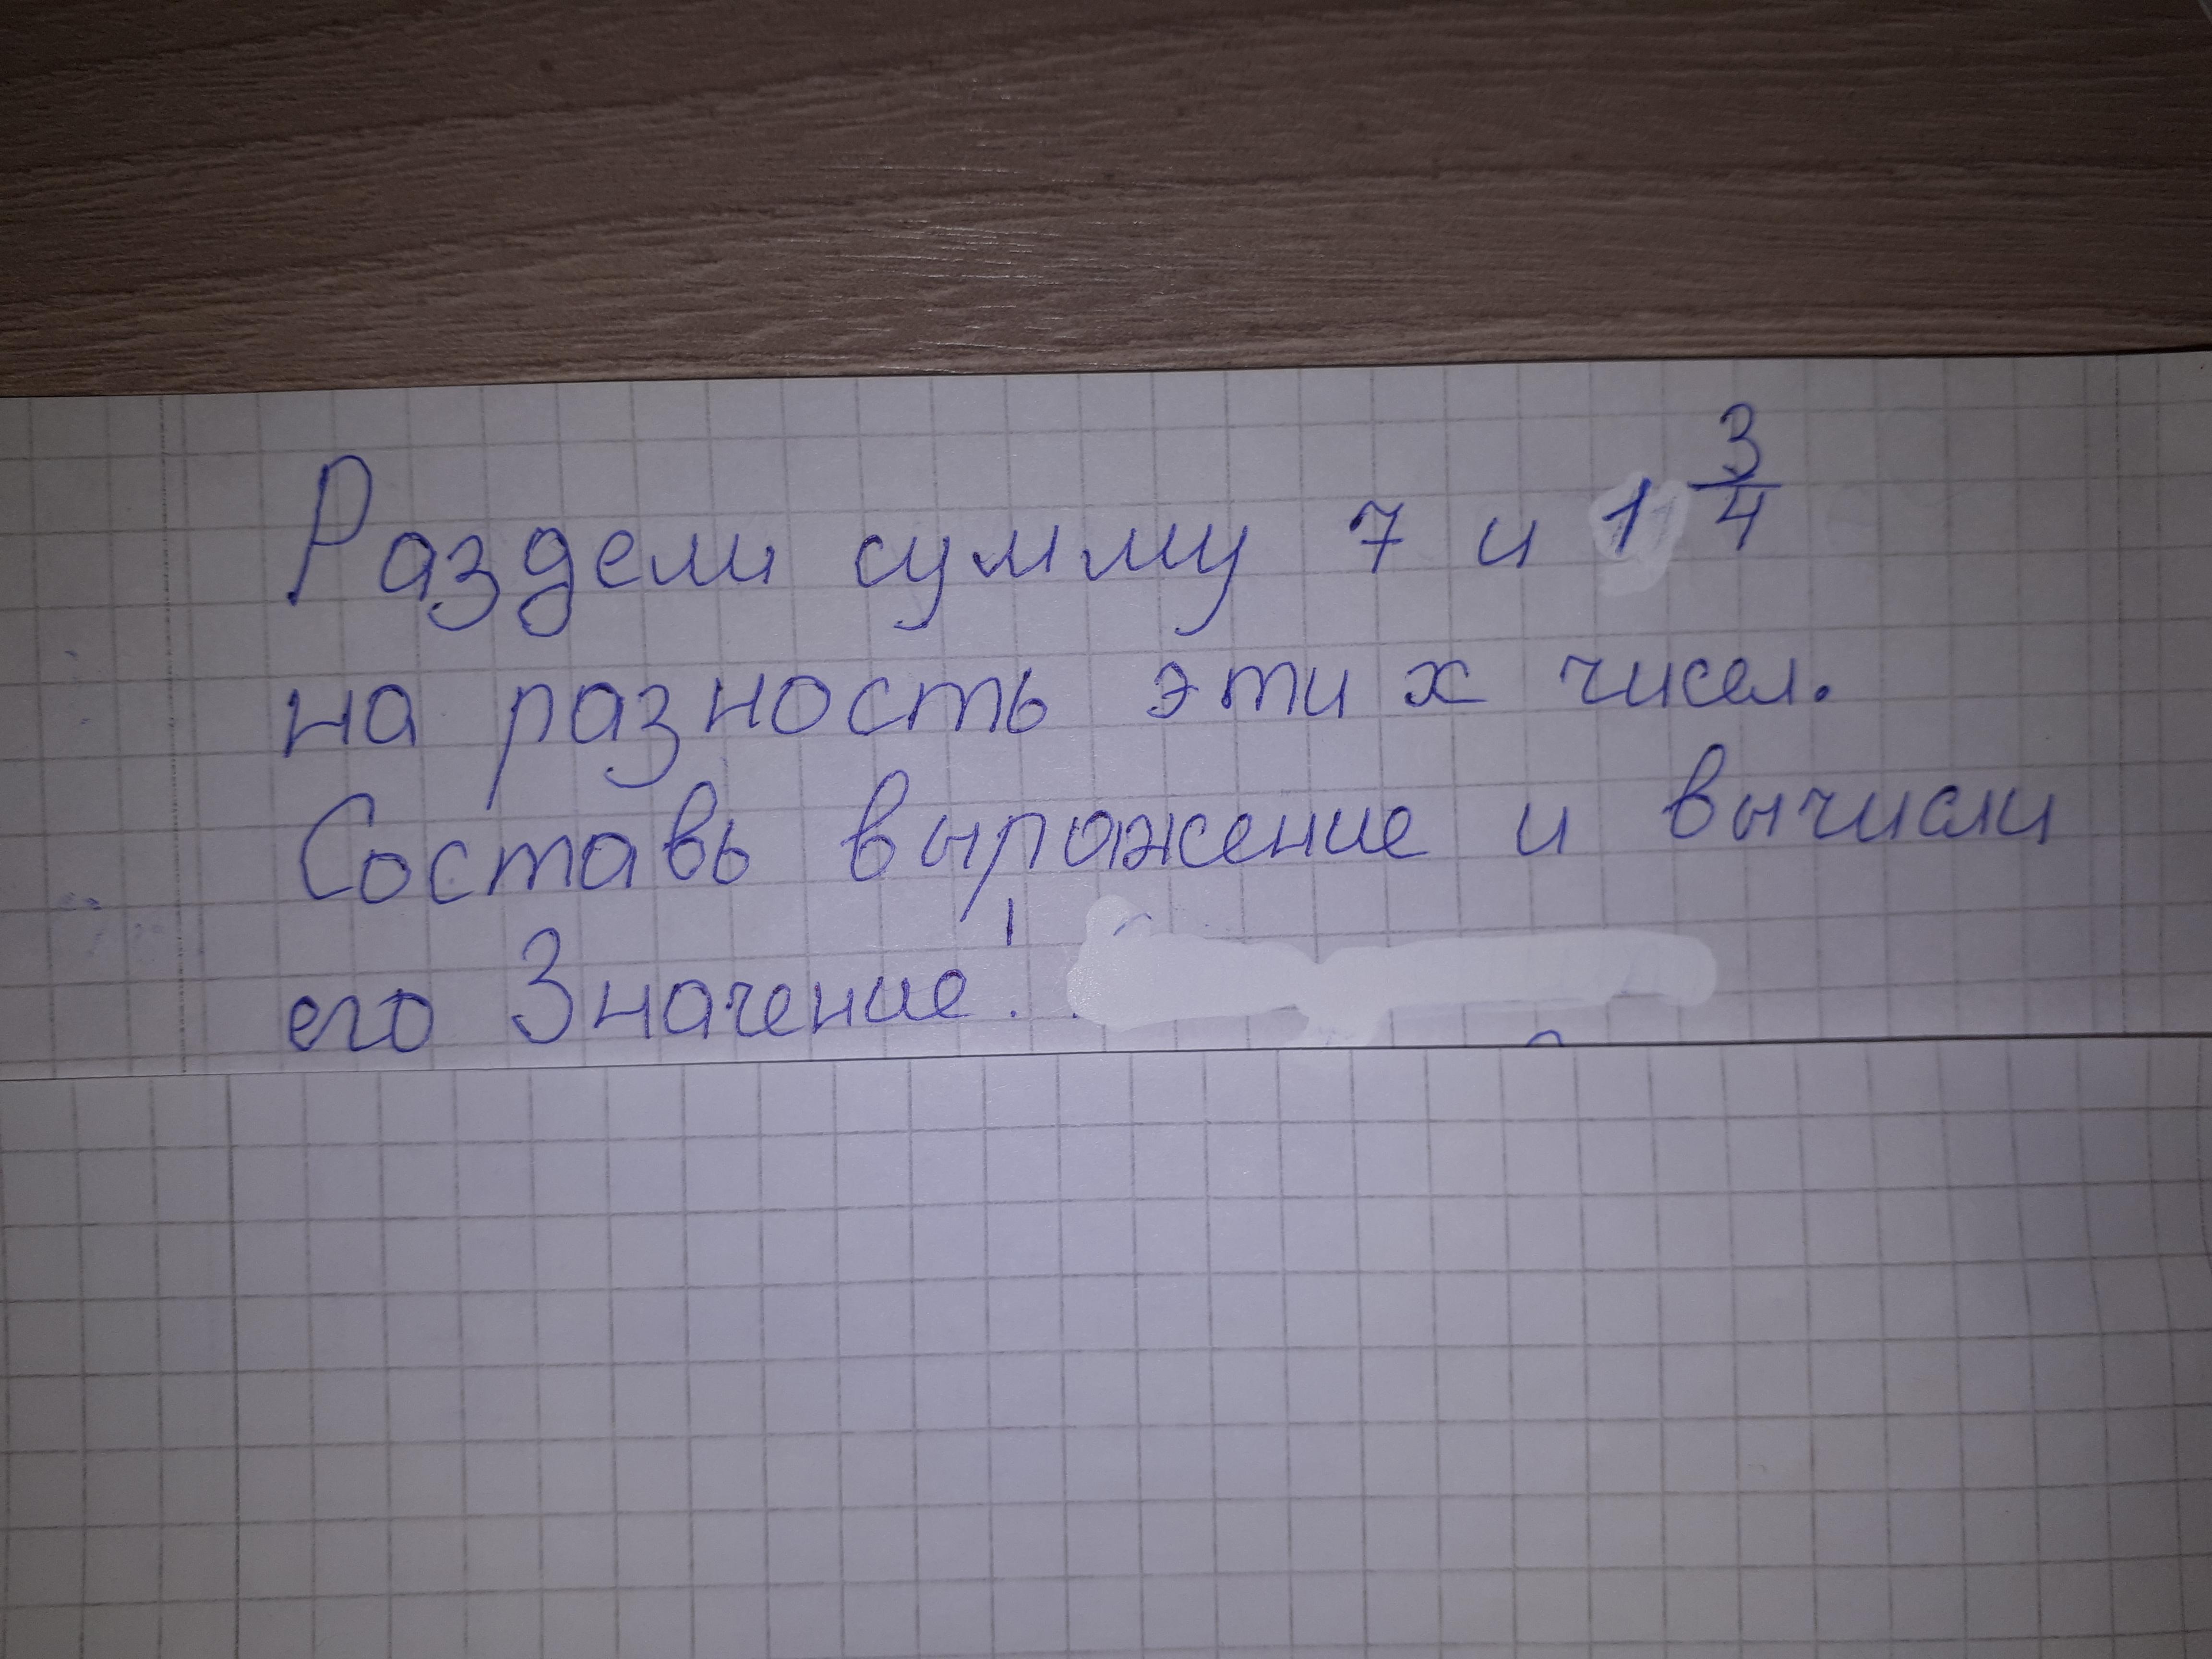 Раздели сумму 7 и 1 3/4
на разность этих чисел.
Составь выражение и вычисли
его Значение!